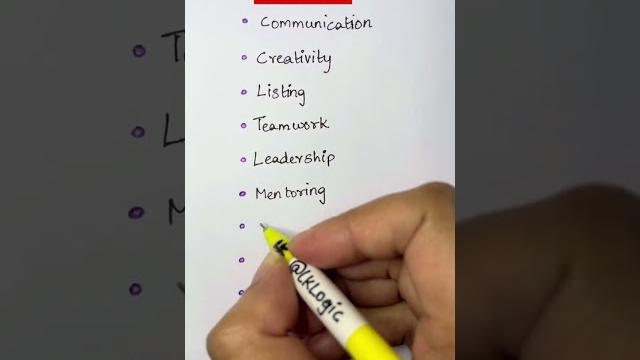 Communication
Creativity
Listing
Teamwork
Leadership
Mentoring
@LKLogic